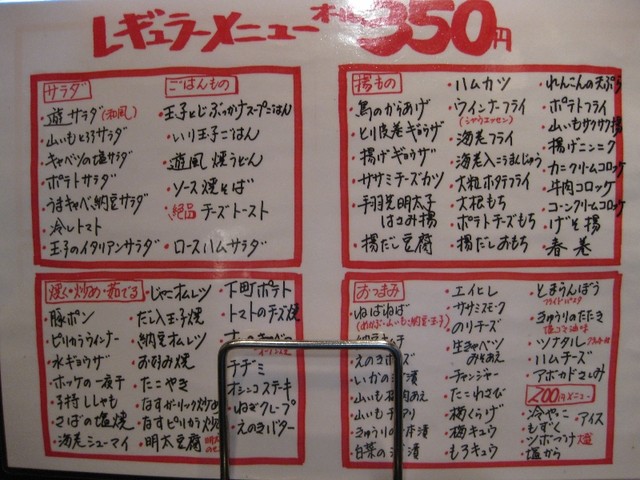 レギュラーメニュー オール350円
サラダ
・遊サラダ(和風)
・山いもとろサラダ
・キャベツの塩サラダ
・ポテトサラダ
・うまキャベ納豆サラダ
・冷しトマト
・玉子のイタリアンサラダ
ごはんもの
・玉子とじぶっかけスープごはん
・いり玉子ごはん
・遊風焼うどん
・ソース焼そば
・絶品チーズトースト
・ロースハムサラダ
揚もの
・鳥のからあげ
・とり皮巻ギョウザ
・揚げギョウザ
・ササミチーズカツ
・手羽先明太子
はさみ揚
・揚だし豆腐
・ハムカツ
・ウインナーフライ
(シャウエッセン)
・海老フライ
・海老入こうまんじゅう
・大粒ホタテフライ
・大根もち
・ポテトチーズもち
・揚だしおもち
・れんこんの天ぷら
・ポテトフライ
・山いもサクサク揚
・揚げニンニク
・カニクリームコロッケ
・牛肉コロッケ
・コーンクリームコロッケ
・げそ揚
・春巻
焼く・炒め・茹でる
・豚ポン
・ピリカラウインナー
・水ギョウザ
・ホッケの一夜干
・子持ししゃも
・さばの塩焼
・海老シューマイ
・じゃこオムレツ
・だし入玉子焼
・納豆オムレツ
・お好み焼
・たこやき
・なすガーリック炒め
・なすピリカラ炒め
・明太豆腐
・下町ポテト
・トマトのチーズ焼
・チヂミ
・オシンコステキ
・ねぎクレープ
・えのきバター
おつまみ
・ねばねば
(めかぶ・山いも・納豆・玉子)
・えのき
・いかの
・山いも
・山いも
・きゅうり
・白菜の
・エイヒレ
・ササミスモーク
・のりチーズ
・生キャベツ
みそあえ
・チャンジャー
・たこわさび
・梅くらげ
・梅キュウ
・もろキュウ
・とまうんぼう
・きゅうりのたたき
塩ゴマ油味
・ツナタル
・ハムチーズ
・アボカドましみ
200円メニュー
・冷やっこ ・アイス
・もずく
・ツボつけ
・塩から